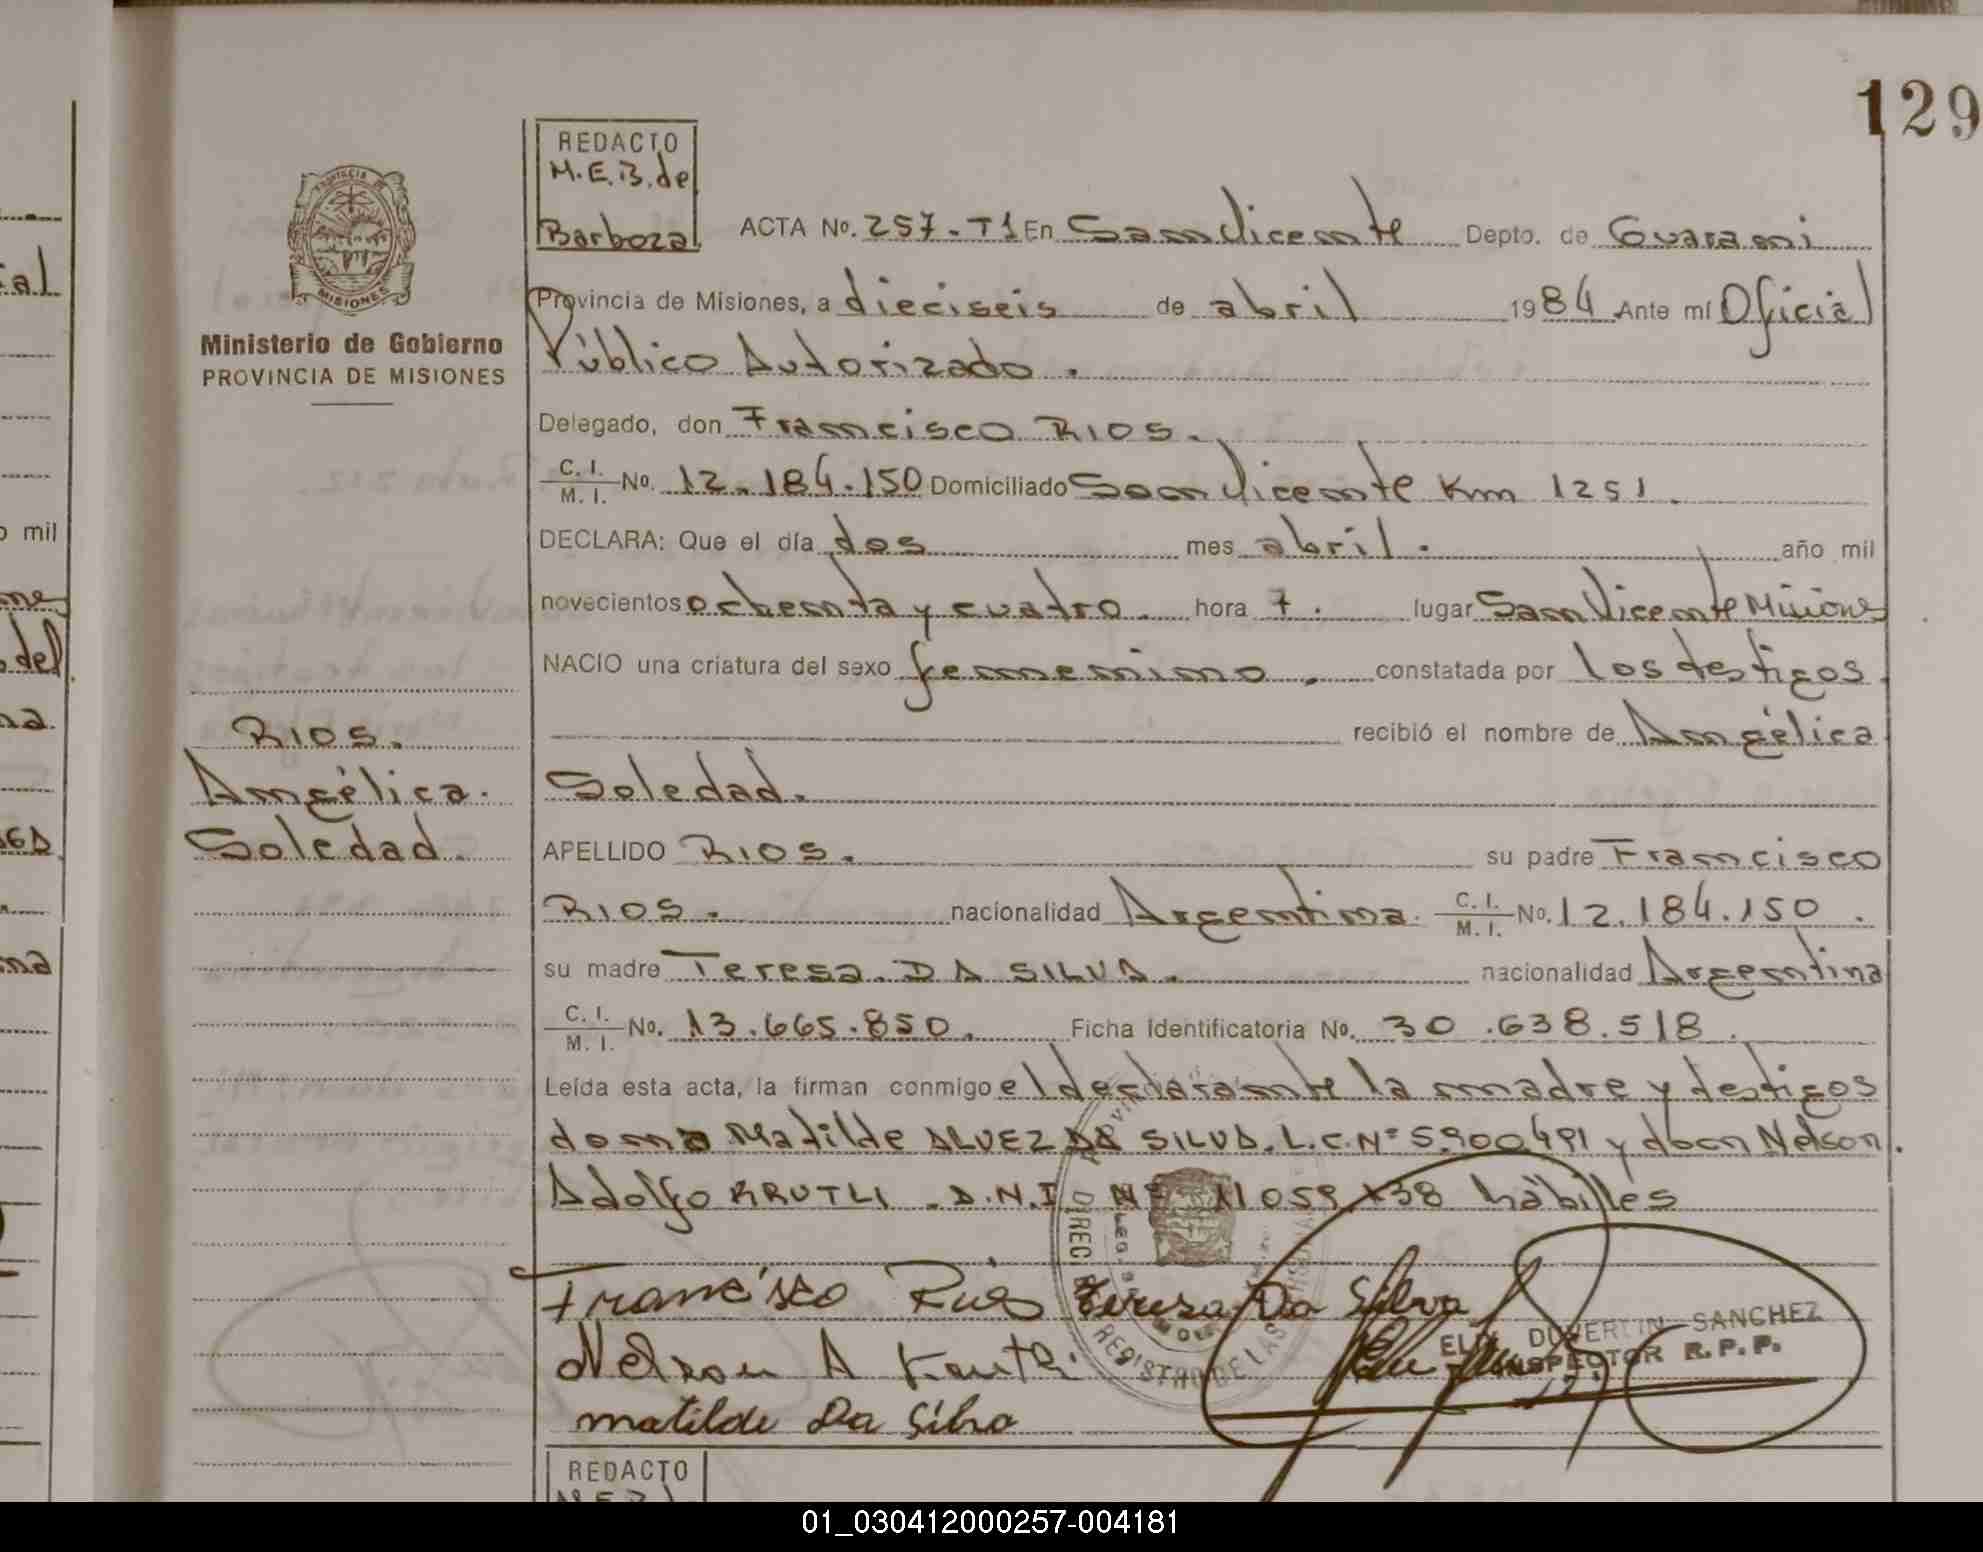 129
REDACTO
M.E.B. de
Barboza
ACTA No. 257-T1 En San Vicente Depto. de Guarani
PROVINCIA DE
MISIONES
Ministerio de Gobierno
PROVINCIA DE MISIONES
Provincia de Misiones, a dieciseis de abril 1984 Ante mí Oficial
Público Autorizado.
Delegado, don Francisco RIOS.
C. I. / M. I. No. 12.184.150 Domiciliado San Vicente Km 1251.
DECLARA: Que el día dos mes abril. año mil
novecientos ochenta y cuatro. hora 7. lugar San Vicente Misiones
NACIO una criatura del sexo femenino. constatada por los testigos
recibió el nombre de Angélica
Soledad.
RIOS.
Angélica.
Soledad.
APELLIDO RIOS. su padre Francisco
RIOS. nacionalidad Argentina. C. I. / M. I. No. 12.184.150.
su madre Teresa. DA SILVA. nacionalidad Argentina
C. I. / M. I. No. 13.665.850. Ficha Identificatoria No. 30.638.518.
Leída esta acta, la firman conmigo el declarante la madre y testigos
doña Matilde ALVEZ DA SILVA. L.C. Nº 5.900491 y don Nelson
Adolfo KRUTLI. D.N.I. Nº 11059 hábiles
Francisco Rios Teresa Da Silva
Nelson A
matilde Da Silva
DUVERLIN SANCHEZ
INSPECTOR R.P.P.
REGISTRO DE LAS
REDACTO
al
mil
del
01_030412000257-004181